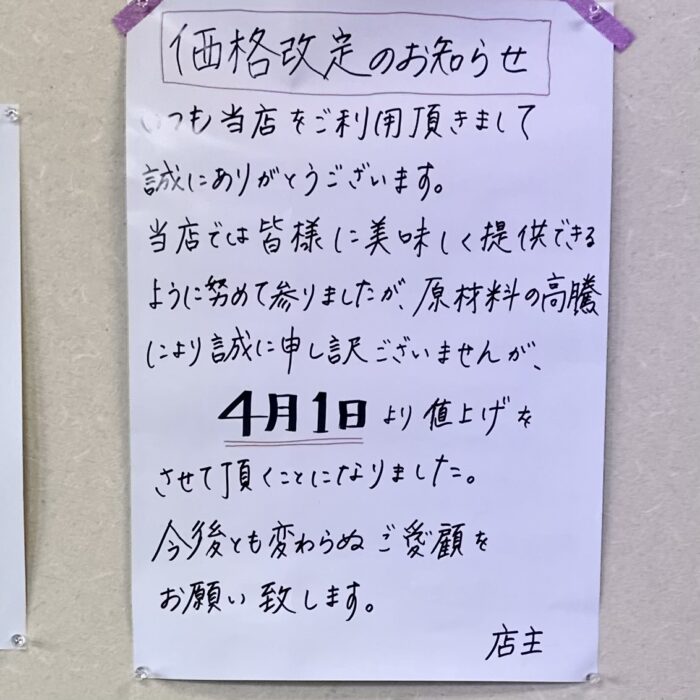 価格改定のお知らせ
いつも当店をご利用頂きまして
誠にありがとうございます。
当店では皆様に美味しく提供できる
ように努めて参りましたが、原材料の高騰
により誠に申し訳ございませんが、
4月1日より値上げを
させて頂くことになりました。
今後とも変わらぬご愛顧を
お願い致します。
店主